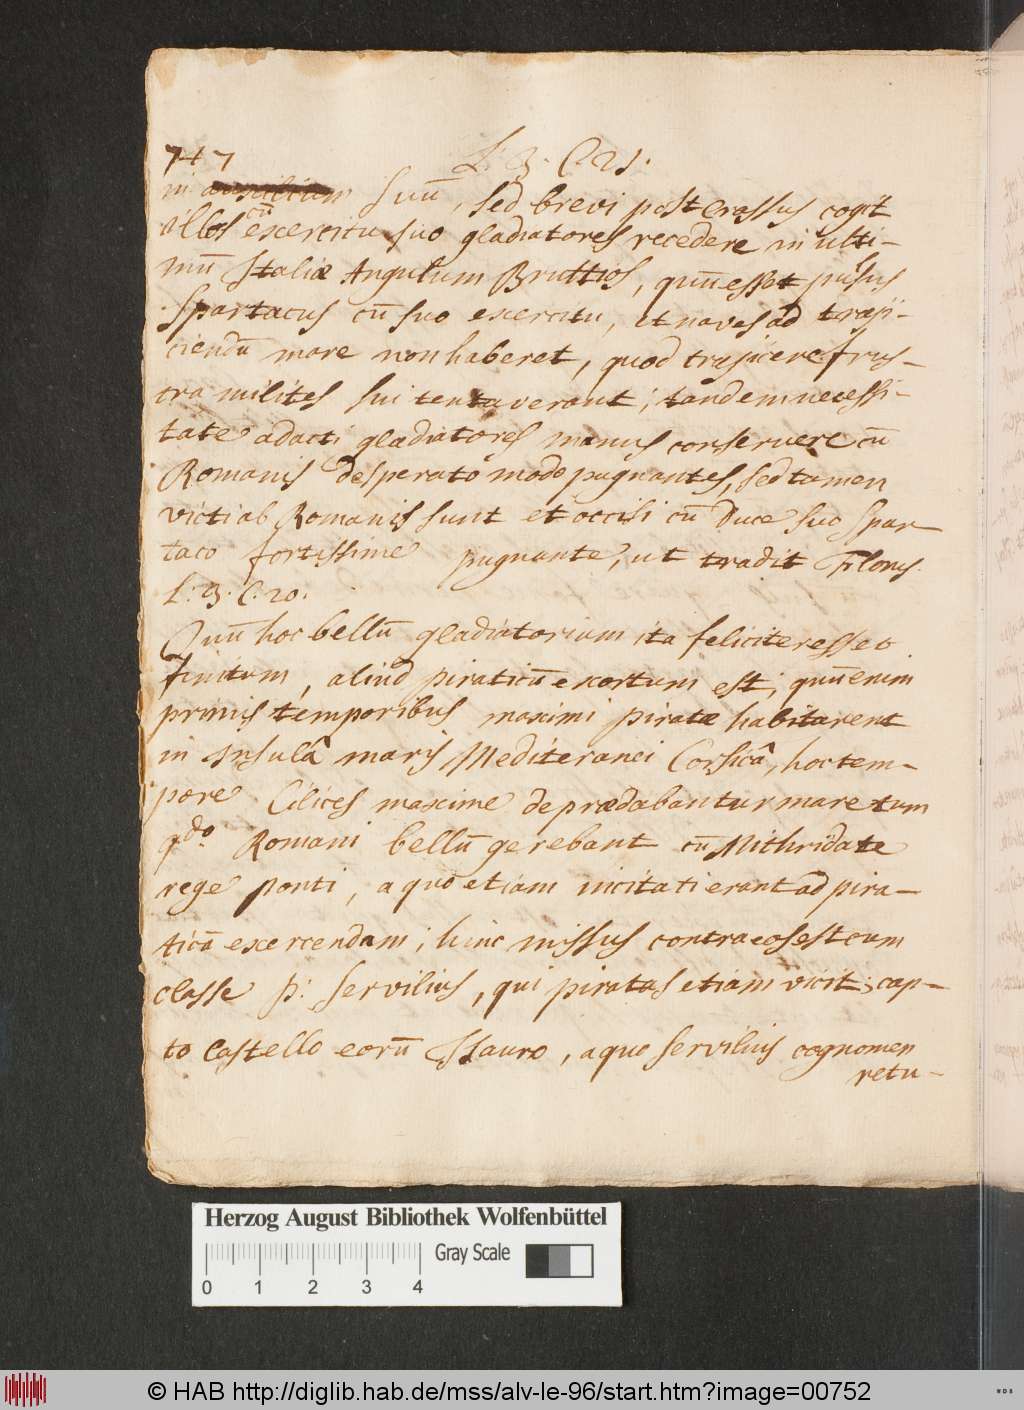 747
L: 3. C. 21.
in auxilium suū, sed brevi post Crassus cogit
illos cū exercitu suo gladiatores recedere in ulti-
mū Italiæ Angulum Bruttios, quū esset pulsus
Spartacus cū suo exercitu, et naves ad traji-
ciendū mare non haberet, quod trajicere frus-
tra milites sui tentaverant; tandem necessi-
tate adacti gladiatores manus conseruere cū
Romanis desperato modo pugnantes, sed tamen
victi ab Romanis sunt et occisi cū Duce suo Spar-
taco fortissime pugnante, ut tradit Florus
L: 3. C. 20.
Quū hoc bellū gladiatorium ita feliciter esset
finitum, aliud piraticū exortum est; quū enim
primis temporibus maximi piratæ habitarent
in Insulâ maris Mediteranei Corsicâ, hoc tem-
pore Cilices maxime deprædabantur mare tum
qdo. Romani bellū gerebant cū Mithridate
rege ponti, a quo etiam incitati erant ad pira-
ticā exercendam; hinc missus contra eos est cum
classe P: Servilius, qui piratas etiam vicit; cap-
to Castello eorū Isauro, a quo Servilius cognomen
retu-
Herzog August Bibliothek Wolfenbüttel
Gray Scale
0 1 2 3 4
© HAB http://diglib.hab.de/mss/alv-le-96/start.htm?image=00752